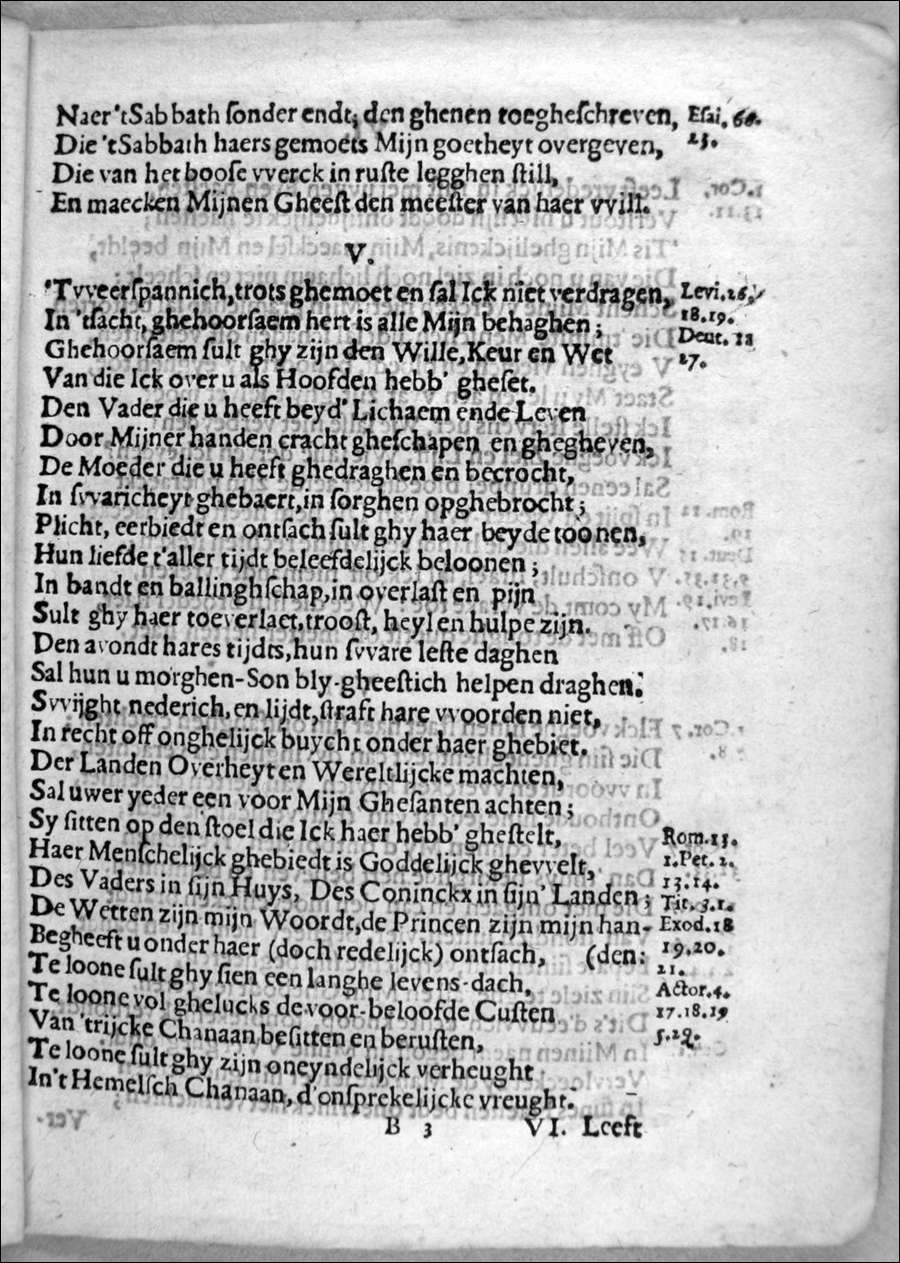 Naer 'tSabbath ſonder endt; den ghenen toegheſchreven, Eſai, 66.
Die 'tSabbath haers gemoets Mijn goetheyt overgeven, 23.
Die van het booſe vverck in ruſte legghen ſtill,
En maecken Mijnen Gheeſt den meeſter van haer vvill.
V.
'Tvveerſpannich, trots ghemoet en ſal Ick niet verdragen, Levi. 26,
In 'tſacht, ghehoorſaem hert is alle Mijn behaghen; 18.19.
Ghehoorſaem ſult ghy zijn den Wille, Keur en Wet Deut. 28
Van die Ick over u als Hoofden hebb' gheſet. 27.
Den Vader die u heeft beyd' Lichaem ende Leven
Door Mijner handen cracht gheſchapen en ghegheven,
De Moeder die u heeft ghedraghen en becrocht,
In ſvvaricheyt ghebaert, in ſorghen opghebrocht;
Plicht, eerbiedt en ontſach ſult ghy haer beyde toonen,
Hun liefde t'aller tijdt beleefdelijck beloonen;
In bandt en ballinghſchap, in overlaſt en pijn
Sult ghy haer toeverlaet, trooſt, heyl en hulpe zijn.
Den avondt hares tijdts, hun ſvvare leſte daghen
Sal hun u morghen-Son bly-gheeſtich helpen draghen.
Svvijght nederich, en lijdt, ſtraft hare vvoorden niet,
In recht off onghelijck buycht onder haer ghebiet.
Der Landen Overheyt en Wereltlijcke machten,
Sal uwer yeder een voor Mijn Gheſanten achten;
Sy ſitten op den ſtoel die Ick haer hebb' gheſtelt, Rom. 13.
Haer Menſchelijck ghebiedt is Goddelijck ghevvelt, 1.Pet. 2.
Des Vaders in ſijn Huys, Des Coninckx in ſijn' Landen; 13.14.
De Wetten zijn mijn Woordt, de Princen zijn mijn han- Tit. 3.1.
Begheeft u onder haer (doch redelijck) ontſach, (den: Exod. 18
Te loone ſult ghy ſien een langhe levens-dach, 19.20.
Te loone vol ghelucks de voor-beloofde Cuſten 21.
Van 'trijcke Chanaan beſitten en beruſten, Actor. 4.
Te loone ſult ghy zijn oneyndelijck verheught 17.18.19
In't Hemelſch Chanaan, d'onſprekelijcke vreught. 5.29.
B 3 VI. Leeft